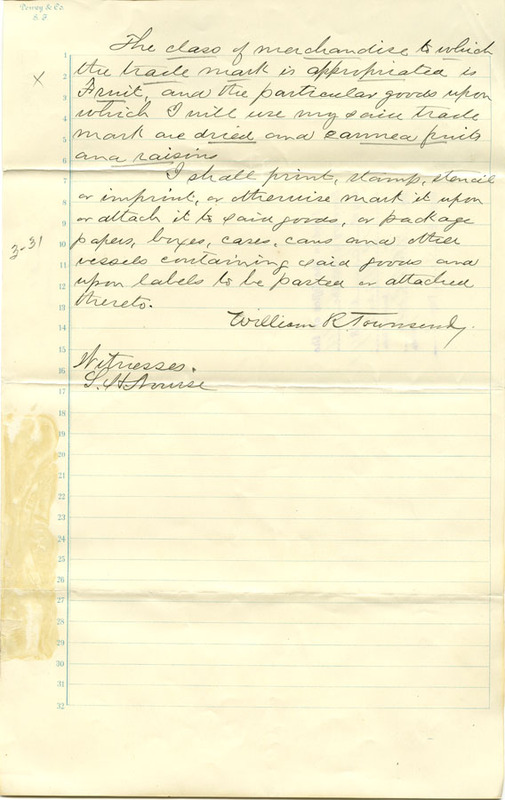 The class of merchandise to which
1
the trade mark is appropriated is
X
2
Fruit, and the particular goods upon
3
which I will use my said trade
4
mark are dried and canned fruits
5
and raisins
6
I shall print, stamp, stencil
7
or imprint, or otherwise mark it upon
8
or attach it to said goods, or package
9
papers, boxes, cases, cans and other
3-31
10
vessels containing said goods and
11
upon labels to be pasted or attached
12
thereto.
13
William R. Townsend.
14
15
Witnesses.
16
17
18
19
20
21
22
23
24
25
26
27
28
29
30
31
32